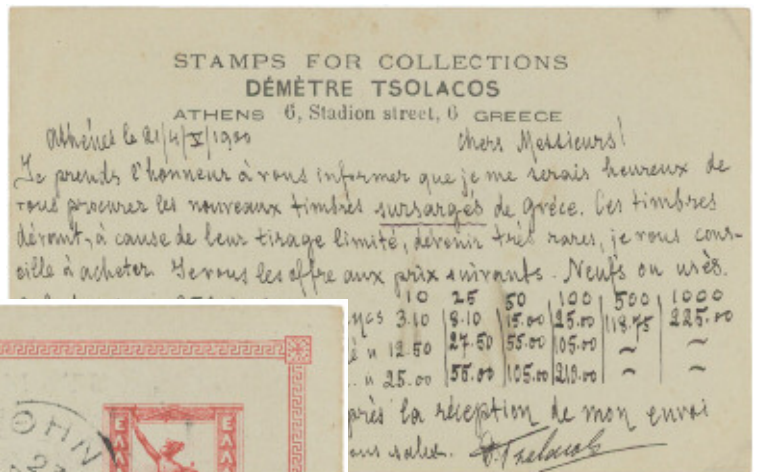 STAMPS FOR COLLECTIONS
DÉMÈTRE TSOLACOS
ATHENS 6, Stadion street, 6 GREECE
Athénes le 21/4/V/1900 chers Messieurs!
Je prends l'honneur à vous informer que je me serais heureux de
vous procurer les nouveaux timbres sursargés de Grèce. Ces timbres
dévront, à cause de leur tirage limité, dévenir très rares, je vous cons-
eille à acheter. Je vous les offre aux prix suivants. Neufs ou usès.
10 25 50 100 500 1000
3.10 8.10 15.00 25.00 118.75 225.00
12.50 27.50 55.00 105.00 ~ ~
25.00 55.00 105.00 210.00 ~ ~
près la réception de mon envoi
ous salue. D. Tsolacos
ΘΗΝ
ΕΛΛ ΕΛΛ